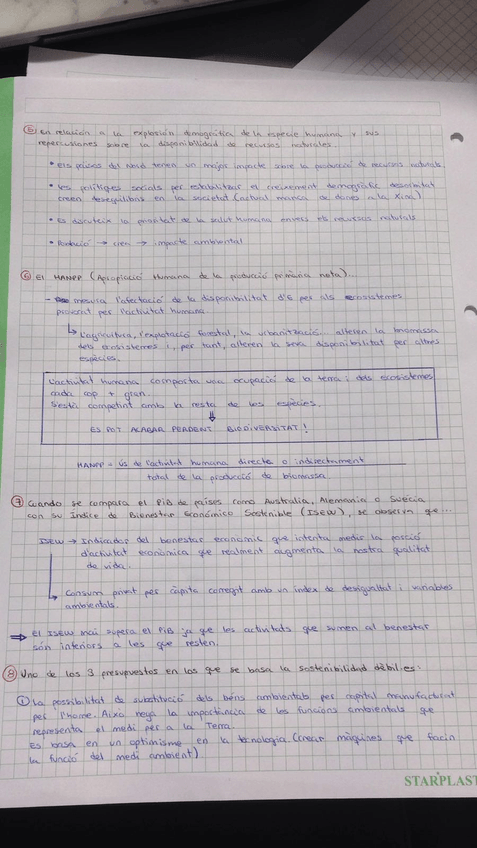 ⑤ En relación a la explosión demográfica de la especie humana y sus
repercusiones sobre la disponibilidad de recursos naturales.
• Els països del Nord tenen un major impacte sobre la producció de recursos naturals
• Les polítiques socials per estabilitzar el creixement demogràfic
creen desequilibris en la societat (actual manca de dones a la Xina)
• Es discuteix la prioritat de la salut humana envers els recursos naturals
• Població → creix → impacte ambiental
⑥ El HANPP (Apropiació Humana de la producció primària neta)...
- mesura l'afectació de la disponibilitat d'E per als ecosistemes
provocat per l'activitat humana
↳ L'agricultura, l'explotació forestal, la urbanització... alteren la biomassa
dels ecosistemes i, per tant, alteren la seva disponibilitat per altres
espècies.
L'activitat humana comporta una ocupació de la terra i dels ecosistemes
cada cop + gran.
S'està competint amb la resta de les espècies.
⇓
ES POT ACABAR PERDENT BIODIVERSITAT!
HANPP = ús de l'activitat humana directe o indirectament
total de la producció de biomassa
⑦ Cuando se compara el PiB de países como Australia, Alemania o Suecia
con su Índice de Bienestar Económico Sostenible (ISEW), se observa que...
ISEW → Indicador del benestar econòmic que intenta medir la porció
d'activitat econòmica que realment augmenta la nostra qualitat
de vida.
↳ Consum privat per càpita corregit amb un index de desigualtat i variables
ambientals.
⇒ el ISEW mai supera el PiB ja que les activitats que sumen al benestar
són inferiors a les que resten.
⑧ Uno de los 3 presupuestos en los que se basa la sostenibilidad débil es:
① La possibilitat de substitució dels béns ambientals per capital manufacturat
per l'home. Això nega la importància de les funcions ambientals que
representa el medi per a la Terra.
Es basa en un optimisme en la tecnologia (crear màquines que facin
la funció del medi ambient)
STARPLAST